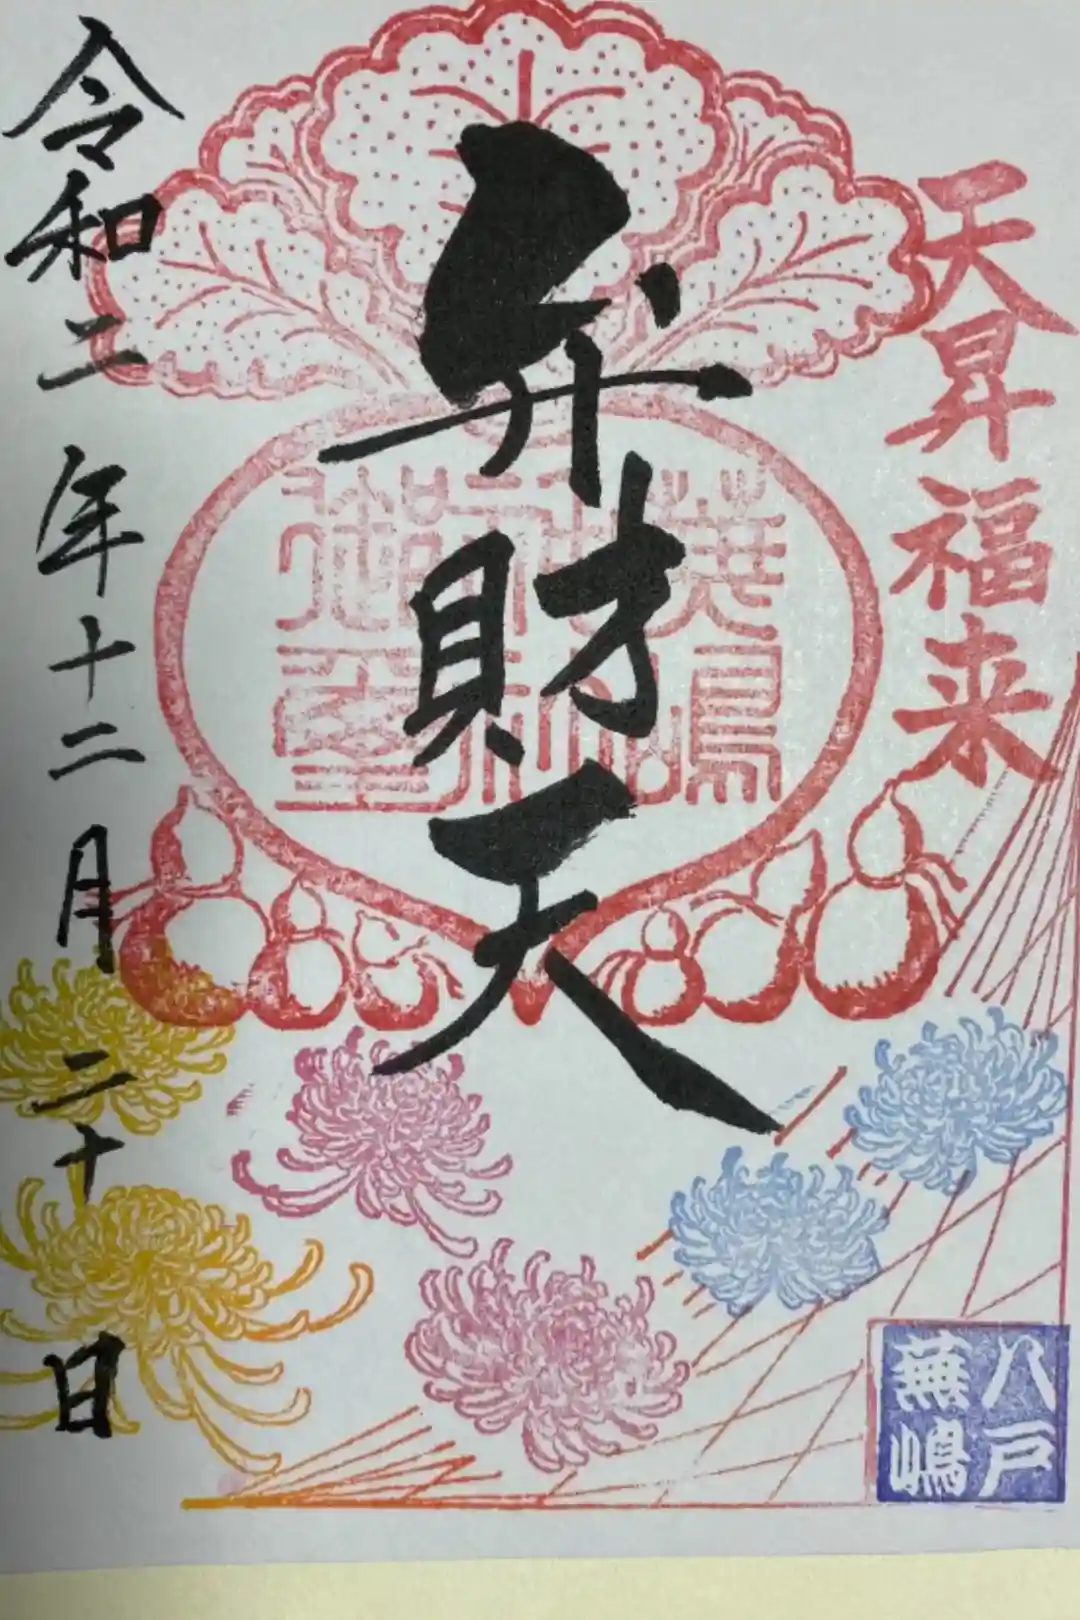 天昇福来
弁財天
蕪嶋神社御璽
令和二年十二月二十日
八戸
蕪嶋